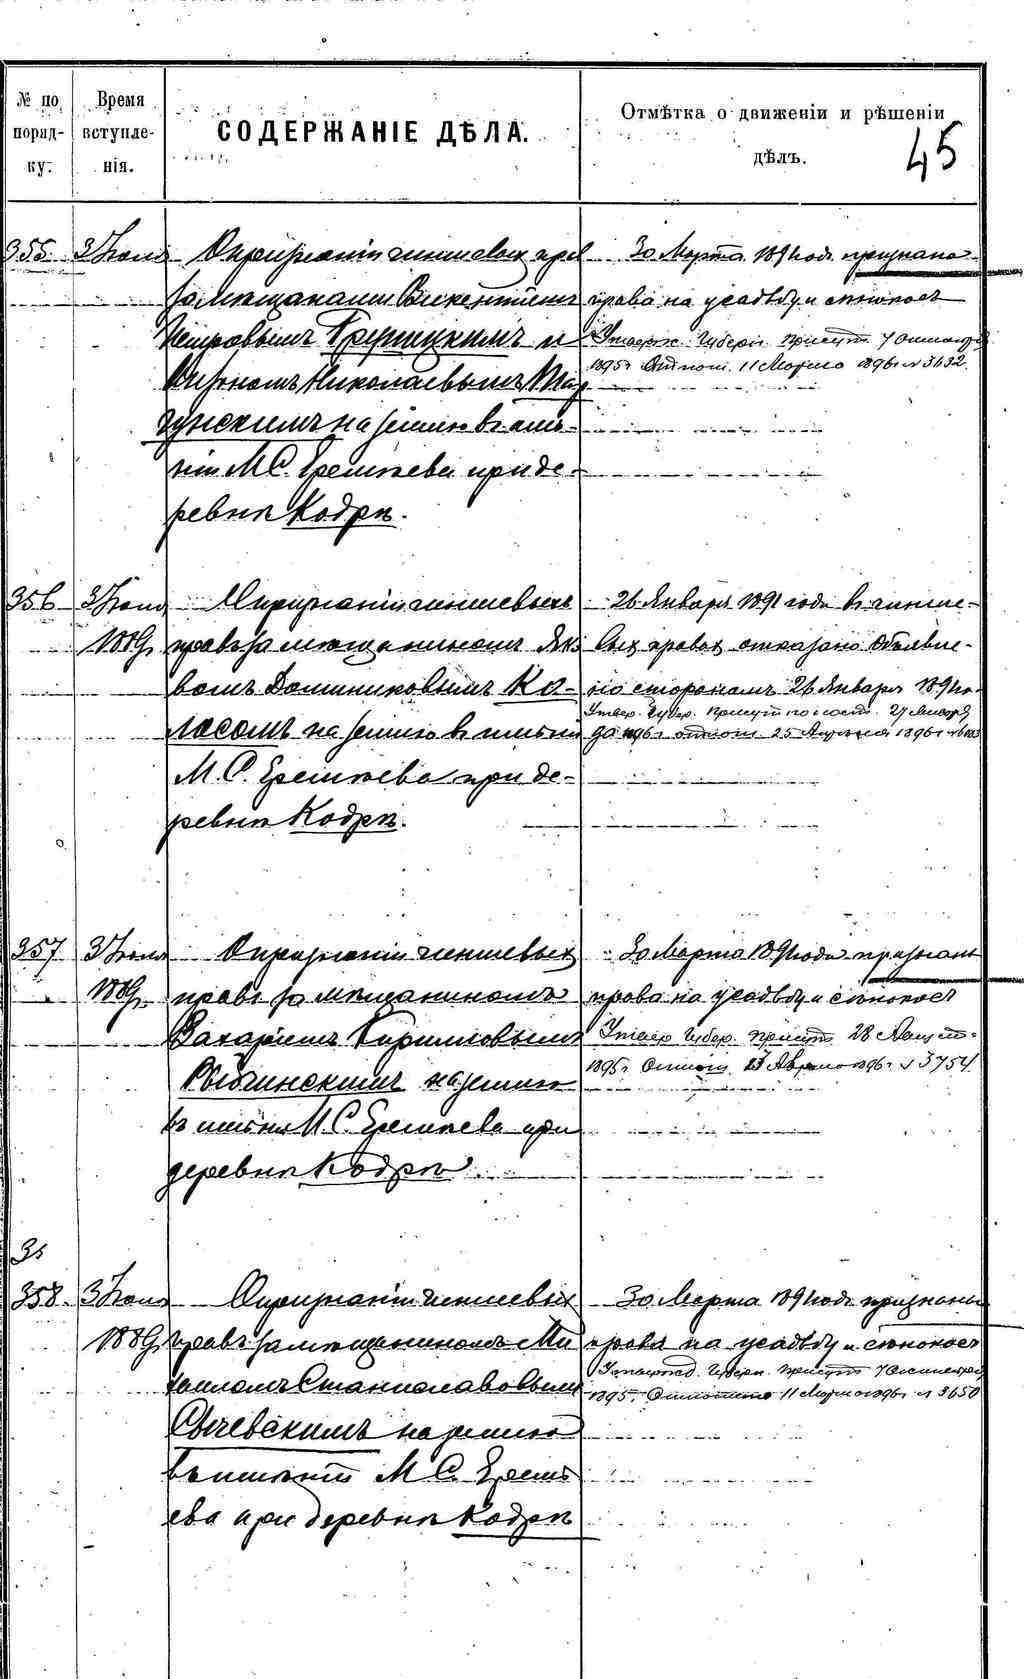 № по порядку.
Время вступленія.
СОДЕРЖАНІЕ ДѢЛА.
Отмѣтка о движеніи и рѣшеніи дѣлъ.
45
355 3 Іюня О признаніи чиншевых прав
за мещанами Викентіемъ
Петровымъ и
Николаевымъ
на землю в имѣ-
ніи М. С. Еремѣева при де-
ревнѣ Кодрѣ.
30 Марта 1891 года признано
права на усадьбу и сѣнокосъ
Утверж. Губерн. Присут. 7 Октября
1895 г. 11 Марта 1896 г. № 3632.
356 3 Іюня
1889
О признаніи чиншевыхъ
правъ за мещаниномъ Яко
вомъ Доминиковымъ Ко-
лосомъ на землю в имѣніи
М. С. Еремѣева при де-
ревнѣ Кодрѣ.
26 Января 1891 года в чинше-
вых правах отказано Объявле-
но сторонамъ 26 Января 1891 го-
Утвер. Губер. Присут. 27 Января
да 1896 г. 25 Апрѣля 1896 г.
357 3 Іюня
1889
О признаніи чиншевых
правъ за мѣщаниномъ
Захаріемъ Кирилловымъ
на землю
въ имѣніи М. С. Еремѣева при
деревнѣ Кодрѣ
30 Марта 1891 года признаны
права на усадьбу и сѣнокосъ
Утвер. Губер. Присут. 28 Август.
1895 г. 1896 г. № 3754.
3
358. 3 Іюня
1889
О признаніи чиншевых
правъ за мѣщаниномъ Ми
хаиломъ Станиславовымъ
Сычевскимъ на землю
въ имѣніи М. С. Еремѣ
ева при деревнѣ Кодрѣ
30 Марта 1891 года признаны
права на усадьбу и сѣнокосъ
Утвержд. Губерн. Присут. 7 Октября
1895 г. 11 Марта 1896 г. № 3650